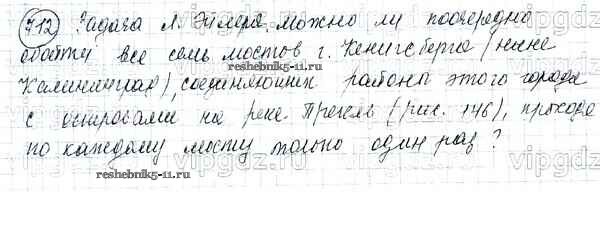 712 Задача Л. Эйлера. можно ли поочередно
обойти все семь мостов г. Кенигсберга (ныне
Калининград), соединяющих районы этого города
с островами на реке Прегель (рис. 146), проходя
по каждому мосту только один раз?
reshebnik5-11.ru
reshebnik5-11.ru
vipgdz.ru
vipgdz.ru
vipgdz.ru